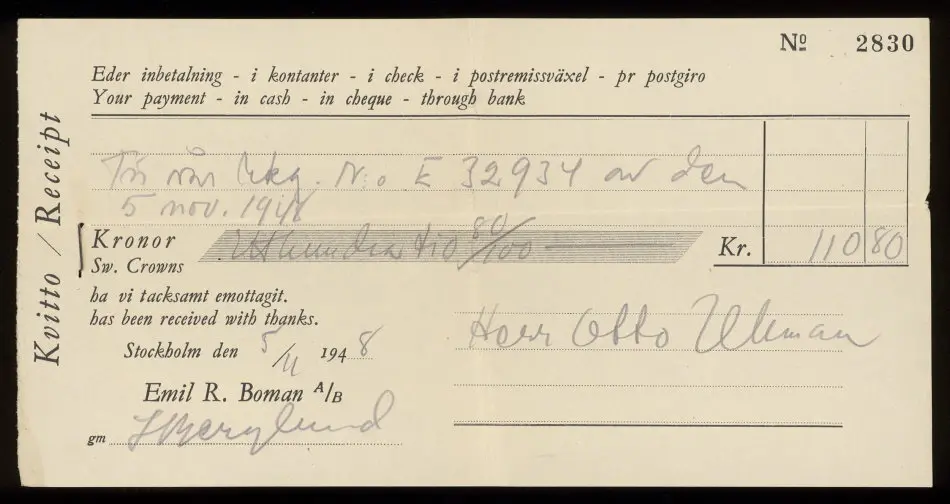 Nº 2830
Eder inbetalning - i kontanter - i check - i postremissväxel - pr postgiro
Your payment - in cash - in cheque - through bank
Kvitto / Receipt
vår räkg. N:o E 32934 av den
5 nov. 1948
Kronor Etthundra tio 80/100
Sw. Crowns
Kr. 110 80
ha vi tacksamt emottagit.
has been received with thanks.
Herr Otto Ulman
Stockholm den 5/11 1948
Emil R. Boman A/B
gm